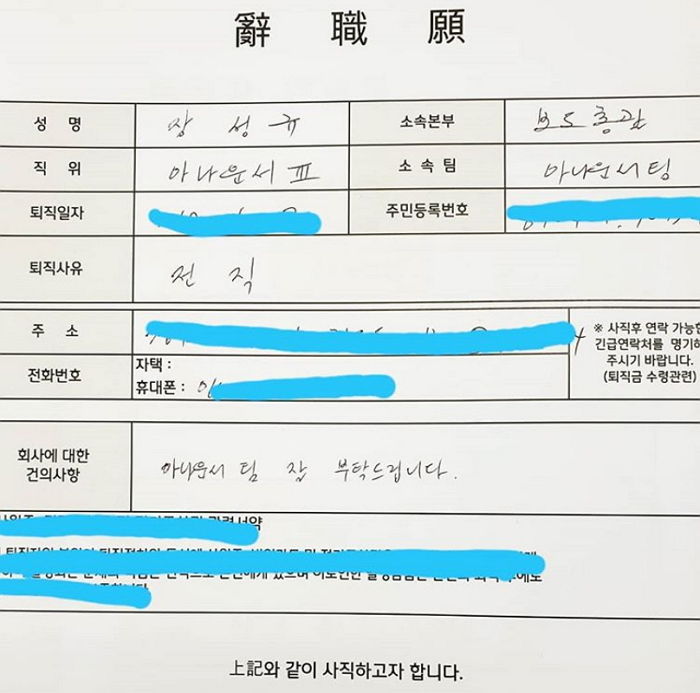 辭 職 願
성 명 장 성 규 소속본부 보도총괄
직 위 아나운서 Ⅲ 소 속 팀 아나운서팀
퇴직일자 주민등록번호
퇴직사유 전 직
주 소
※ 사직후 연락 가능한
긴급연락처를 명기하
주시기 바랍니다.
(퇴직금 수령관련)
전화번호 자택 :
휴대폰 :
회사에 대한
건의사항
아나운서 팀 잘 부탁드립니다.
관련서약
上記와 같이 사직하고자 합니다.